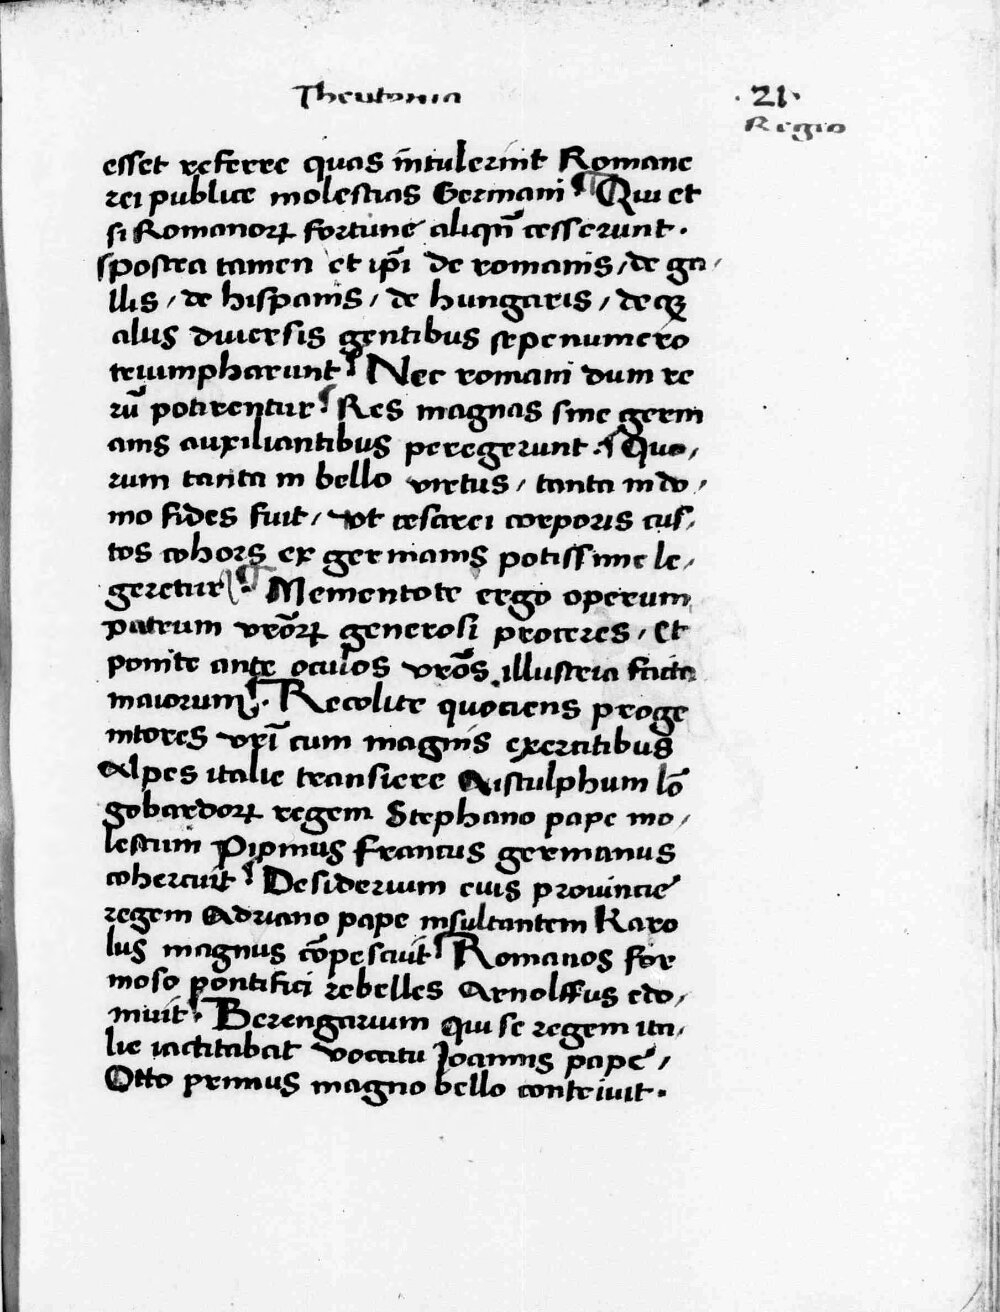 Theutonia
·21·
Regio
esset referre quas intulerint Romane
rei publice molestias Germani Qui et
si Romanorꝝ fortune aliqñ cesserunt ·
postea tamen et ip̄i de romanis / de ga /
llis / de hispanis / de hungaris / deqꝫ
alijs diuersis gentibus sepenumero
triumpharunt Nec romani dum re
rū potirentur Res magnas sine germ
anis auxiliantibus peregerunt · Quo /
rum tanta in bello virtus / tanta in do /
mo fides fuit / vt cesarei corporis cus /
tos cohors ex germanis potissime le /
geretur Mementote ergo operum
patrum vr̄orꝝ generosi proceres / et
ponite ante oculos vr̄os illustria facta
maiorum · Recolite quociens proge
nitores vr̄i cum magnis exercitibus
Alpes italie transiere Aistulphum lō
gobardorꝝ regem Stephano pape mo /
lestum Pipinus francus germanus
cohercuit Desiderium eius prouincie
regem Adriano pape insultantem Karo
lus magnus cōpescuit Romanos for
moso pontifici rebelles Arnolffus edo /
muit · Berengarium qui se regem ita /
lie iactitabat vocatu Joannis pape /
Otto primus magno bello contriuit ·